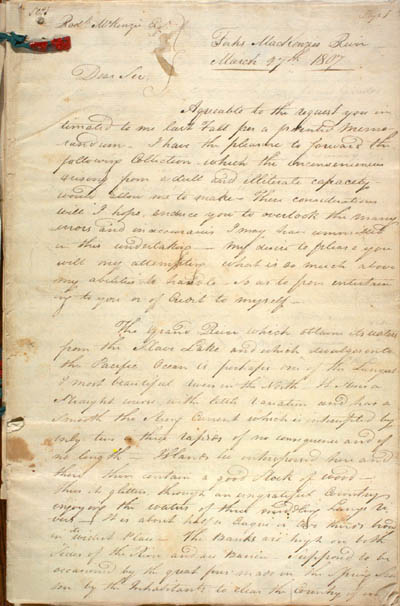 Rodk McKenzie Esq
Forks MacKenzies River
March 27th 1807
Dear Sir,
Agreeable to the request you in
timated to me last Fall per a printed Memo
randum — I have the pleasure to forward the
following Collection — which the inconveniences
arising from a dull and illiterate capacity
would allow me to make — these considerations
will I hope, induce you to overlook the many
errors and inaccuracies I may have committed
in this undertaking — my desire to please you
will my attempting what is so much above
my abilities to handle so as to prove entertain
ing to you or of Credit to myself —
The Grand River which obtains its waters
from the Slave Lake and which disembogues into
the Pacific Ocean is perhaps one of the Longest
& most beautiful rivers in the North. It has a
Straight course, with little variation and has a
Smooth tho Strong Current which is interrupted by
only two or three rapids of no consequence and of
no length — Islands lie interspersed here and
there, them contain a good Stock of wood —
thus it glitters through an ungrateful Country
enjoying the waters of many
— It is about half a league in
in Widest Place — The Banks are high on both
Sides of the River and are Barren — Supposed to be
occasioned by the great fires made in the Spring Sea
son by the Inhabitants to clear the Country of